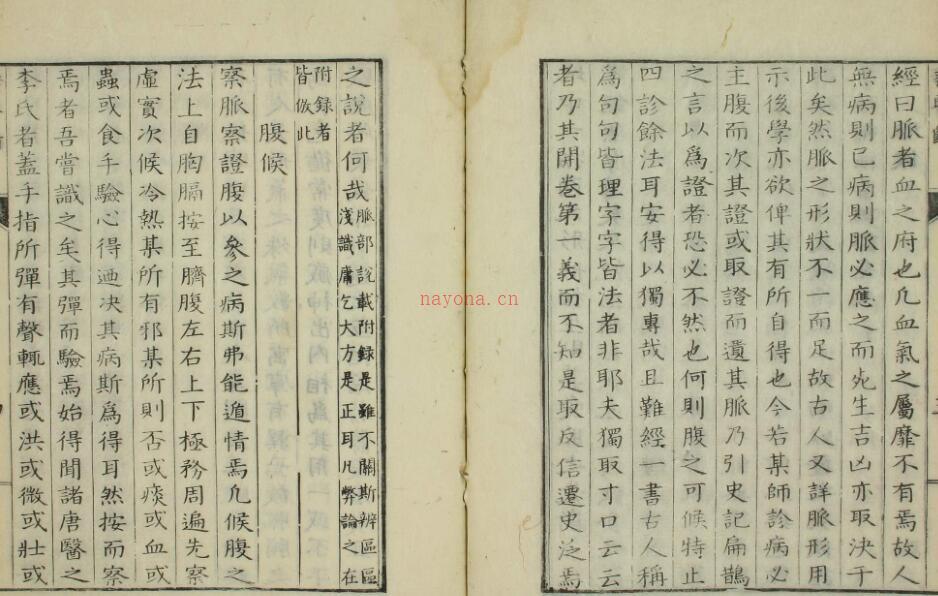 經曰脈者血之府也凡血氣之屬靡不有焉故人
無病則已病則脈必應之而死生吉凶亦取決于
此矣然脈之形狀不一而足故古人又詳脈形用
示後學亦欲俾其有所自得也今若某師診病必
主腹而次其證或取證而遺其脈乃引史記扁鵲
之言以爲證者恐必不然也何則腹之可候特止
四診餘法耳安得以獨專哉且難經一書古人稱
爲句句皆理字字皆法者非耶夫獨取寸口云云
者乃其開卷第一義而不知是取反信遷史泛焉
之說者何哉脈部說載附錄是雖不關斯辨區區
淺識庸乞大方是正耳凡弊論之在
附錄者
皆倣此
腹候
察脈察證腹以參之病斯弗能遁情焉凡候腹之
法上自胸膈按至臍腹左右上下極務周遍先察
虛實次候冷熱某所有邪某所則否或痰或血或
蟲或食手驗心得逎决其病斯爲得耳然按而察
焉者吾嘗識之矣其彈而驗焉始得聞諸唐醫之
李氏者蓋手指所彈有聲輒應或洪或微或壯或
nayona.cn